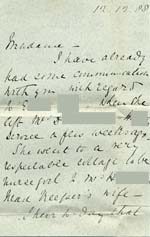 12.12.88
Madame -
I have already
had some communication
with you with regard
to E when she
left Mr
service a few weeks ago.
She went to a very
respectable cottage to be
nursegirl to Mr H
Head Keeper's wife -
I hear to day that